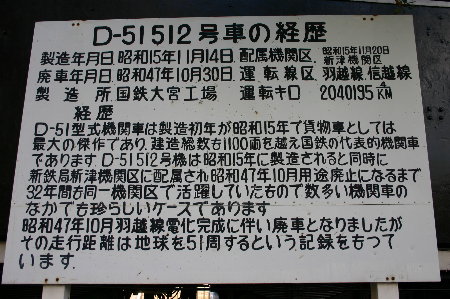 D-51512号車の経歴
製造年月日 昭和15年11月14日.配属機関区.昭和15年11月20日 新津機関区
廃車年月日 昭和47年10月30日.運転線区.羽越線.信越線
製造所 国鉄大宮工場 運転キロ 2040195KM
経歴
D-51型式機関車は製造初年が昭和15年で貨物車としては
最大の傑作であり.建造総数も1100両を越え国鉄の代表的機関車
であります D-51512号機は昭和15年に製造されると同時に
新鉄局新津機関区に配属され昭和47年10月用途廃止になるまで
32年間も同一機関区で活躍していたもので数多い機関車の
なかでも珍らしいケースであります
昭和47年10月羽越線電化完成に伴い廃車となりましたが
その走行距離は地球を51周するという記録をもって
います.